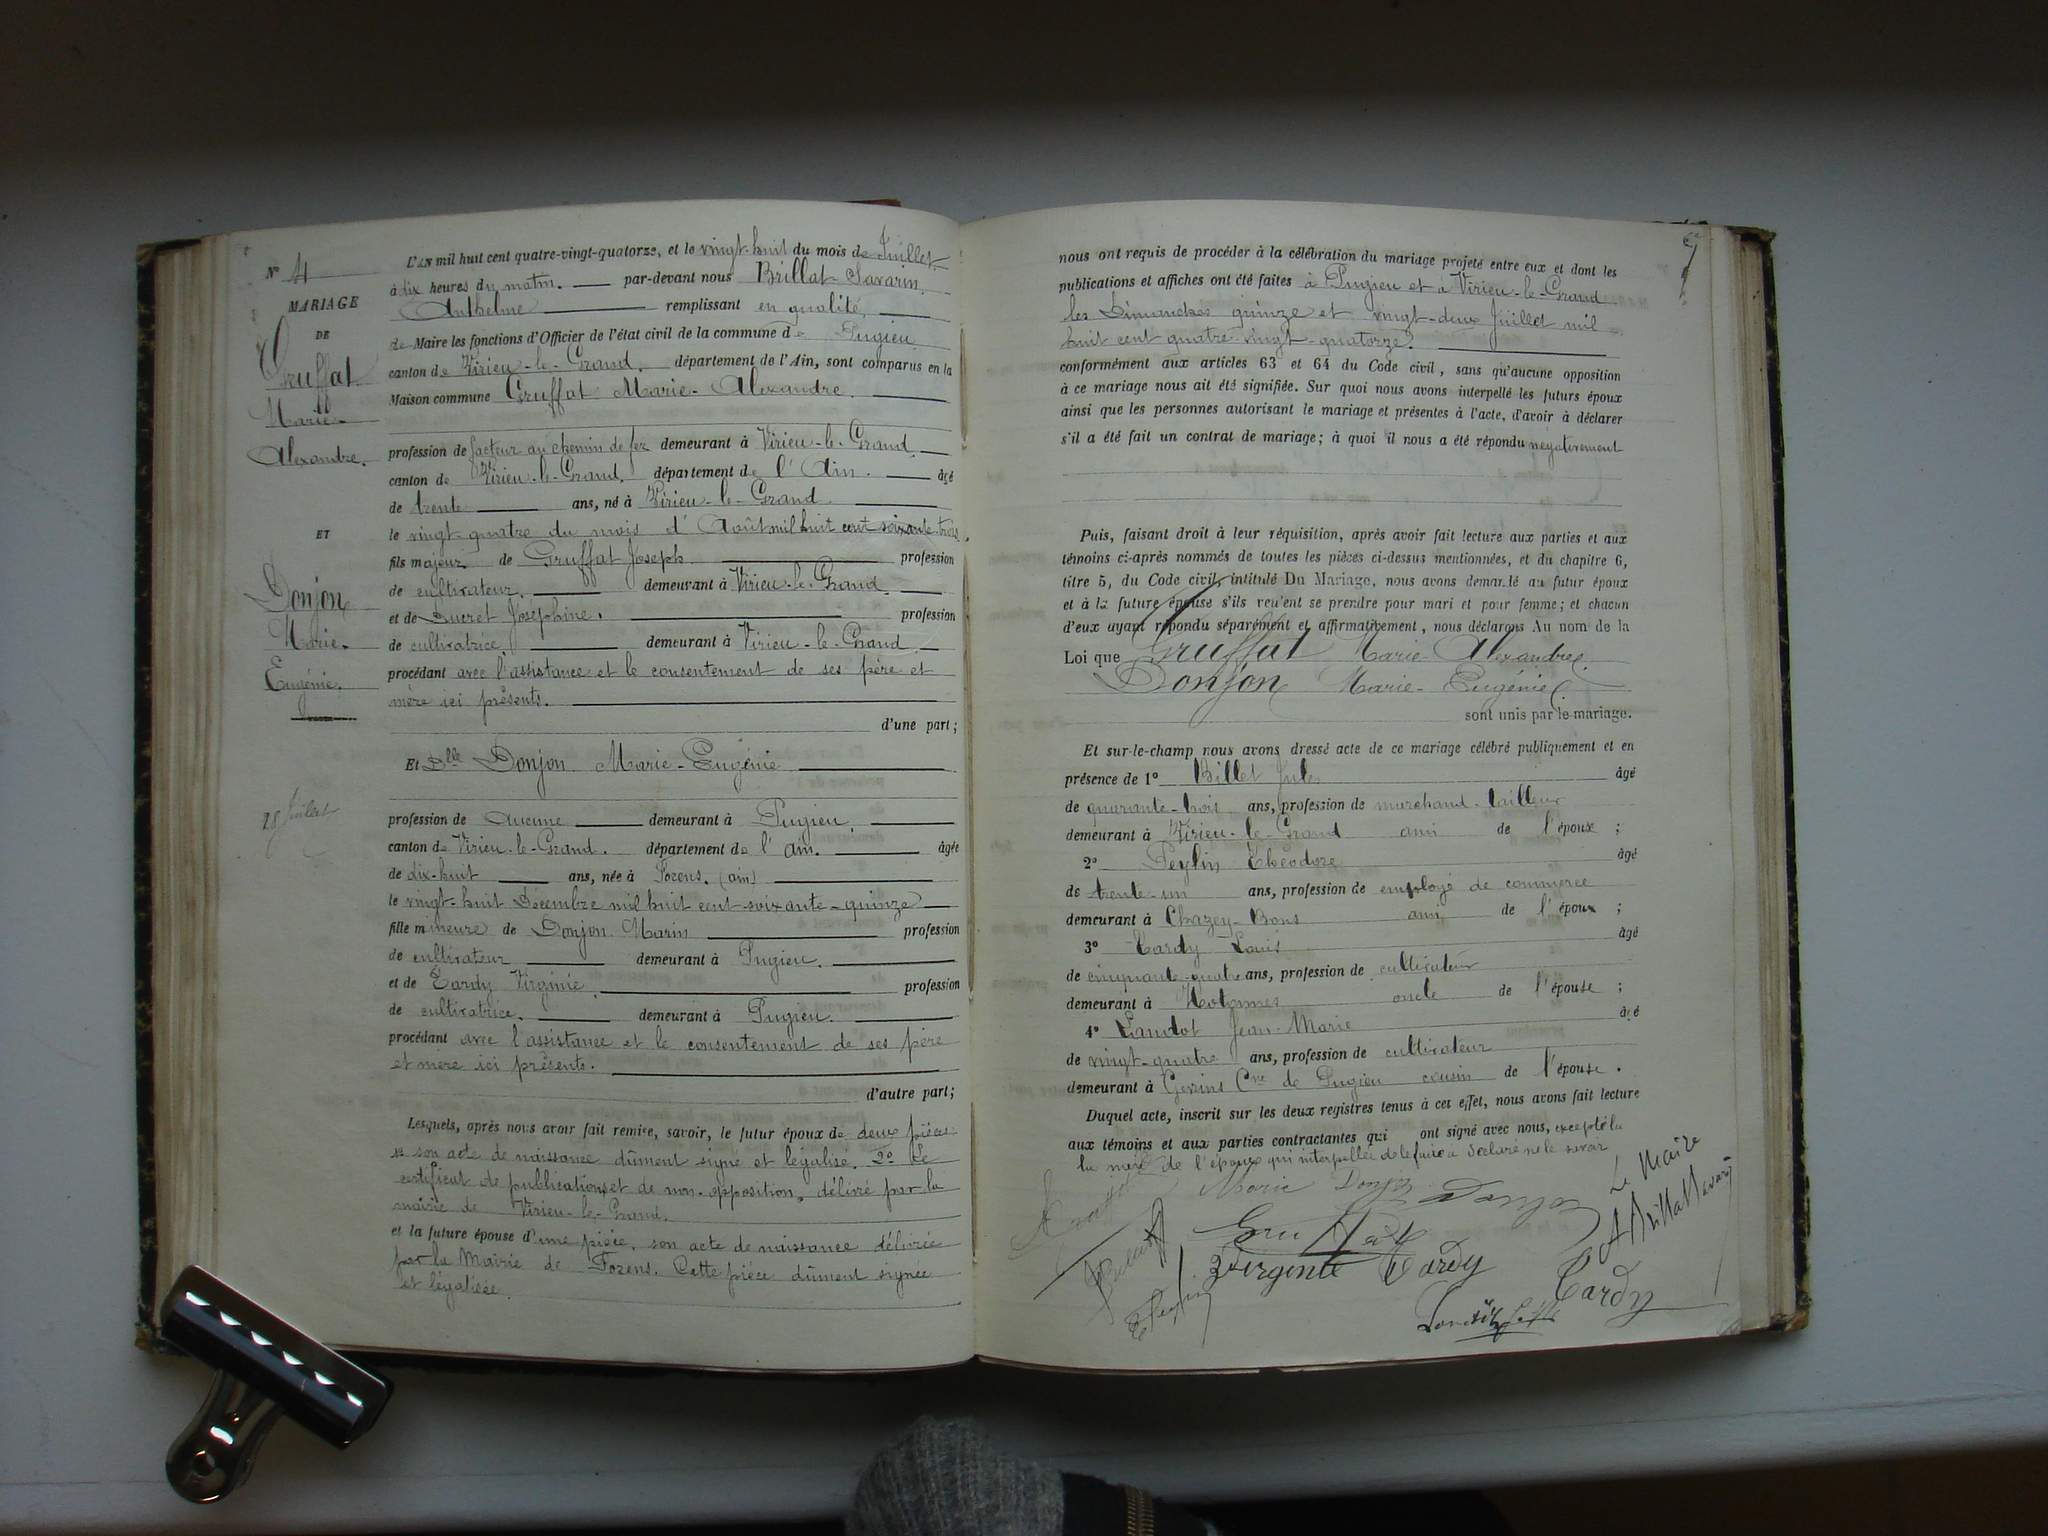 N° 4
MARIAGE
DE
Gruffat
Marie-
Alexandre.
ET
Donjon
Marie-
Eugénie.
28 Juillet
L'AN mil huit cent quatre-vingt-quatorze, et le vingt-huit du mois de Juillet
à dix heures du matin. par-devant nous Brillat-Savarin
Anthelme remplissant en qualité
de Maire les fonctions d'Officier de l'état civil de la commune de Pugieu
canton de Virieu-le-Grand, département de l'Ain, sont comparus en la
Maison commune Gruffat Marie-Alexandre.
profession de facteur au chemin de fer demeurant à Virieu-le-Grand
canton de Virieu-le-Grand. département de l'Ain. âgé
de trente ans, né à Virieu-le-Grand
le vingt-quatre du mois d'Août mil huit cent soixante trois
fils majeur de Gruffat Joseph profession
de cultivateur. demeurant à Virieu-le-Grand.
et de Ducret Joséphine. profession
de cultivatrice. demeurant à Virieu-le-Grand
procédant avec l'assistance et le consentement de ses père et
mère ici présents.
d'une part;
Et Dlle Donjon Marie-Eugénie
profession de aucune demeurant à Pugieu.
canton de Virieu-le-Grand. département de l'ain. âgée
de dix-huit ans, née à (ain)
le vingt-huit Décembre mil huit cent soixante-quinze
fille mineure de Donjon Marin profession
de cultivateur demeurant à Pugieu.
et de Tardy Virginie profession
de cultivatrice. demeurant à Pugieu.
procédant avec l'assistance et le consentement de ses père
et mère ici présents.
d'autre part;
Lesquels, après nous avoir fait remise, savoir, le futur époux de deux pièces
son acte de naissance dûment signé et légalisé. 2° Le
certificat de publications et de non-opposition, délivré par la
mairie de Virieu-le-Grand.
et la future épouse d'une pièce, son acte de naissance délivrée
par la Mairie de Cette pièce dûment signée
et légalisée.
nous ont requis de procéder à la célébration du mariage projeté entre eux et dont les
publications et affiches ont été faites à Pugieu et à Virieu-le-Grand
les Dimanches quinze et vingt-deux Juillet mil
huit cent quatre-vingt-quatorze.
conformément aux articles 63 et 64 du Code civil, sans qu'aucune opposition
à ce mariage nous ait été signifiée. Sur quoi nous avons interpellé les futurs époux
ainsi que les personnes autorisant le mariage et présentes à l'acte, d'avoir à déclarer
s'il a été fait un contrat de mariage; à quoi il nous a été répondu négativement
Puis, faisant droit à leur réquisition, après avoir fait lecture aux parties et aux
témoins ci-après nommés de toutes les pièces ci-dessus mentionnées, et du chapitre 6,
titre 5, du Code civil, intitulé Du Mariage, nous avons demandé au futur époux
et à la future épouse s'ils veulent se prendre pour mari et pour femme; et chacun
d'eux ayant répondu séparément et affirmativement, nous déclarons Au nom de la
Loi que Gruffat Marie-Alexandre.
Donjon Marie-Eugénie.
sont unis par le mariage.
Et sur-le-champ nous avons dressé acte de ce mariage célébré publiquement et en
présence de 1° Billet Jules âgé
de quarante-trois ans, profession de marchand-tailleur
demeurant à Virieu-le-Grand ami de l'épouse ;
2° Peylin Théodore âgé
de trente-un ans, profession de employé de commerce
demeurant à Chazey-Bons ami de l'époux ;
3° Tardy Louis âgé
de cinquante-quatre ans, profession de cultivateur
demeurant à Hotonnes oncle de l'épouse ;
4° Jean-Marie âgé
de vingt-quatre ans, profession de cultivateur
demeurant à Cne de Pugieu cousin de l'épouse.
Duquel acte, inscrit sur les deux registres tenus à cet effet, nous avons fait lecture
aux témoins et aux parties contractantes qui ont signé avec nous, excepté la
la mère de l'époux qui interpellée de le faire a déclaré ne le savoir
Le Maire
Marie Donjon Donjon
A Brillat Savarin
Gruffat
Tardy
Tardy